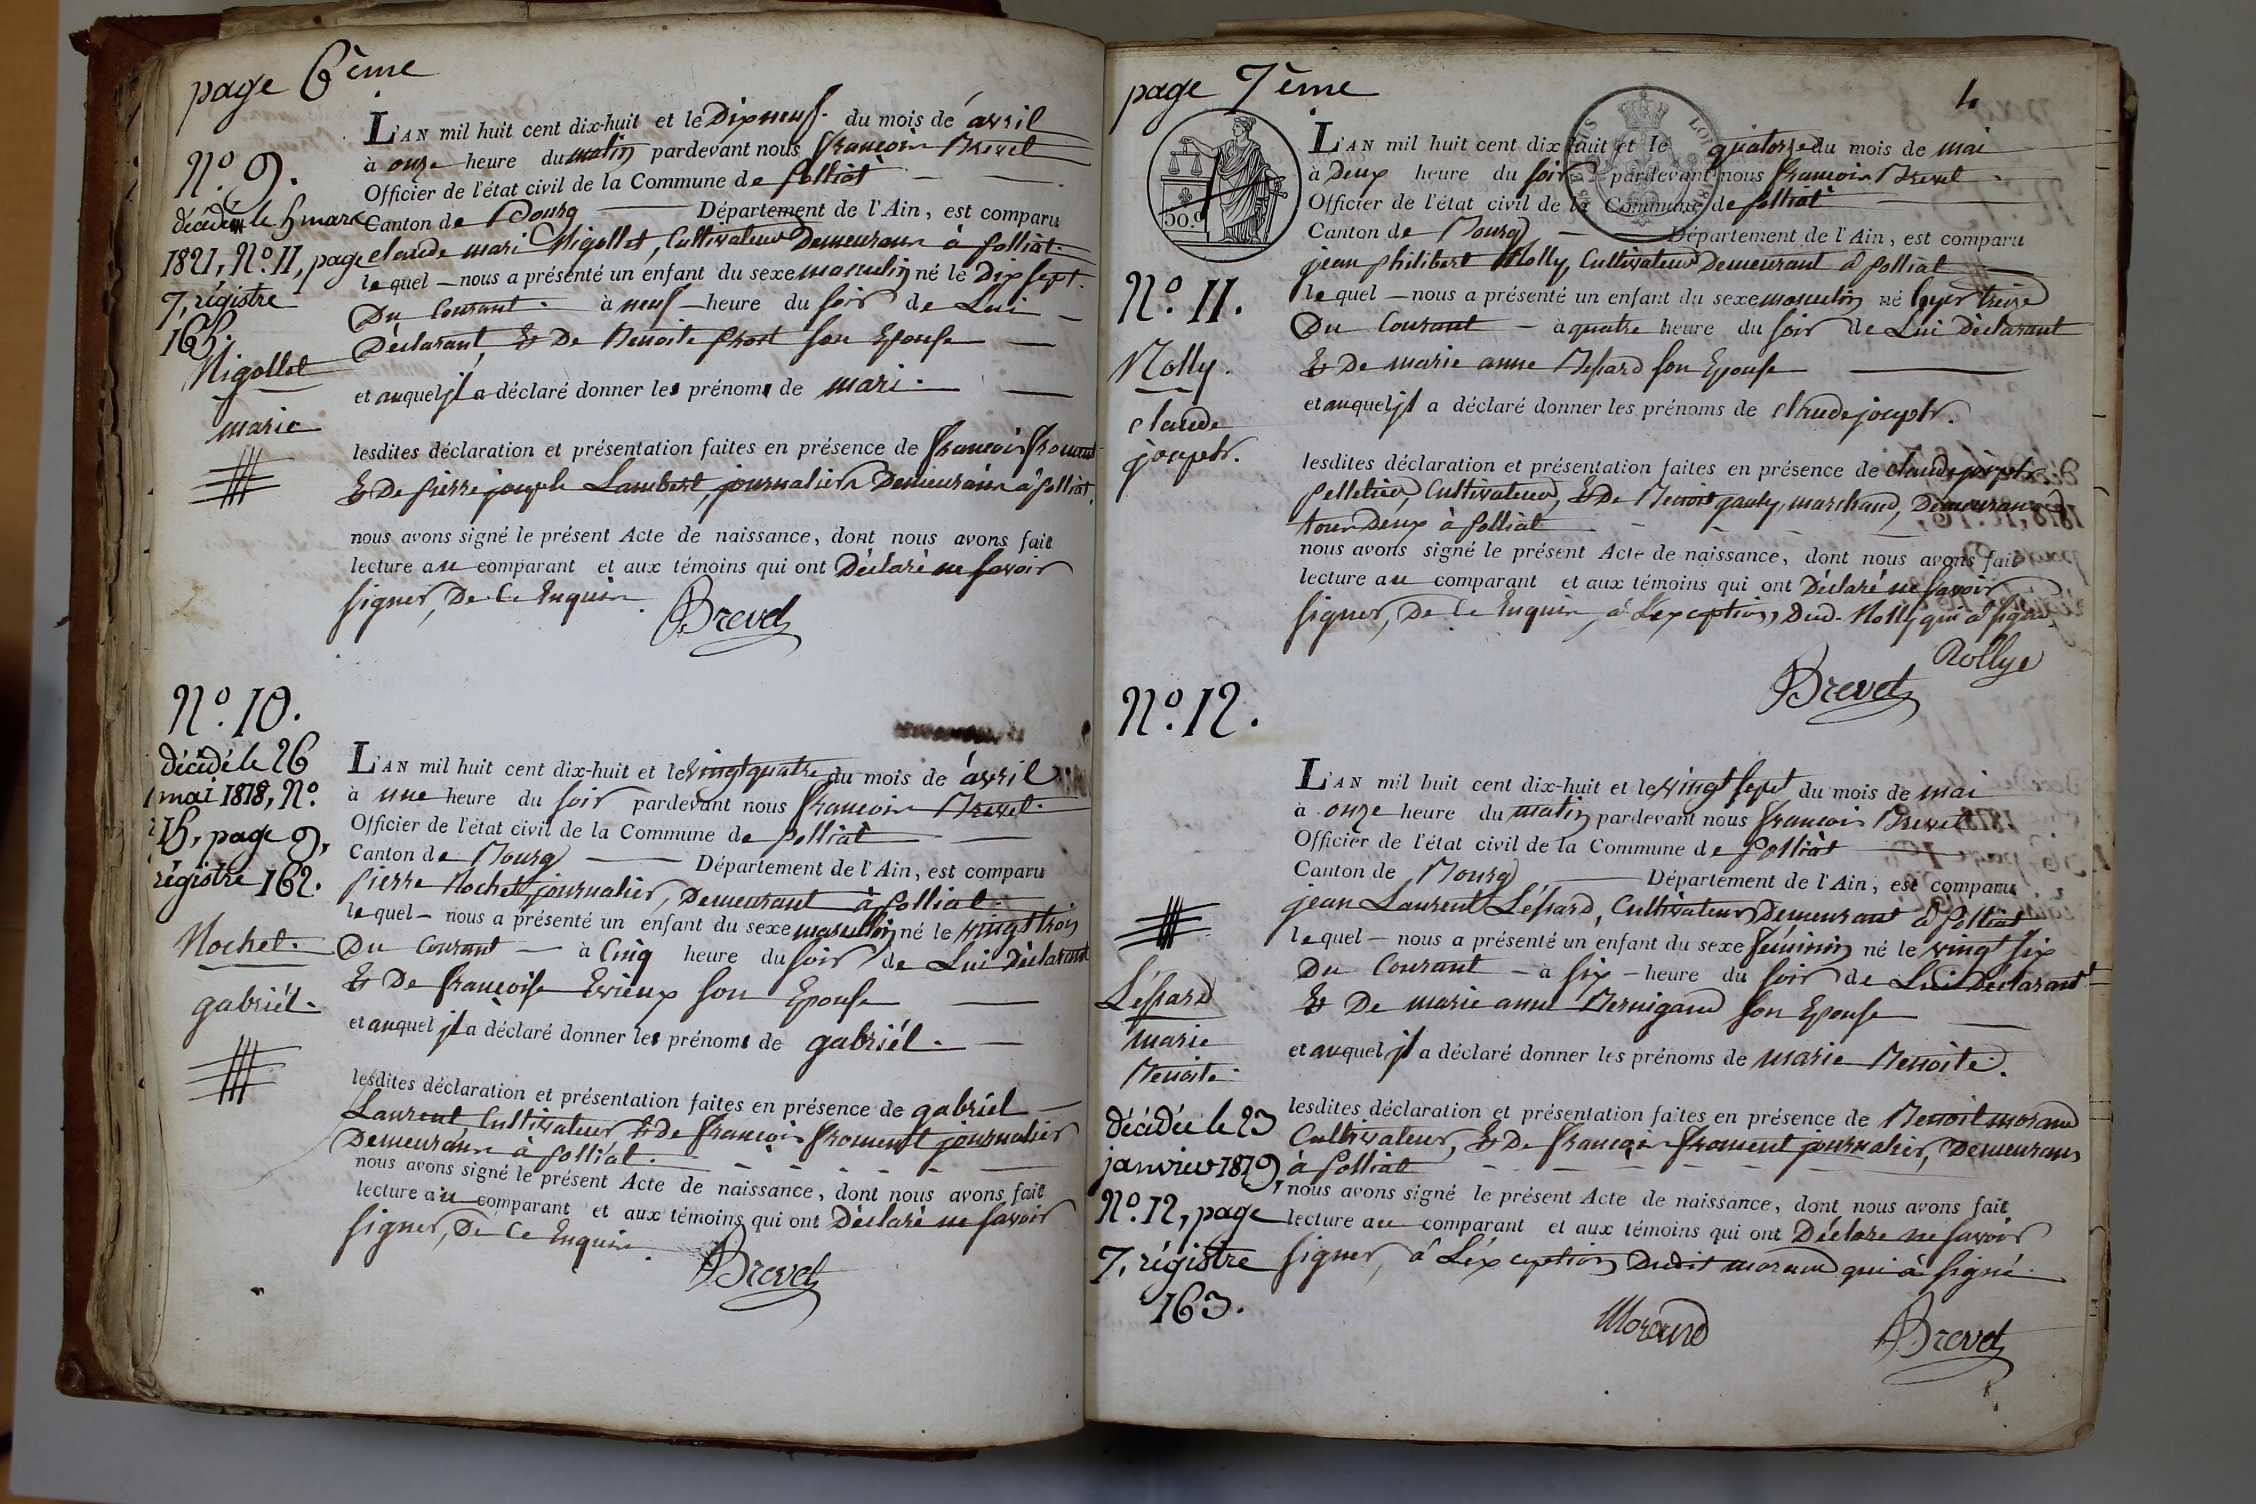 page 6ème
L'AN mil huit cent dix-huit et le Dixneuf du mois de avril
à onze heure du matin pardevant nous françois Brevet
Officier de l'état civil de la Commune de polliat
Canton de Bourg Département de l'Ain, est comparu
claude mari Nigollet, Cultivateur Demeurant à polliat
lequel nous a présenté un enfant du sexe masculin né le Dix sept
Du Courant à neuf heure du soir de Lui
Déclarant, & De Benoite prost son Epouse
et auquel jl a déclaré donner les prénoms de mari.
lesdites déclaration et présentation faites en présence de françois froment
& De pierre joseph Lambert, journaliers Demeurans à polliat.
nous avons signé le présent Acte de naissance, dont nous avons fait
lecture au comparant et aux témoins qui ont Déclaré ne savoir
signer, De Ce Enquis
Brevet
No. 9.
décédé le 5 mars
1821, No. 11, page
7, régistre
165.
Nigollet
marie
No. 10.
décédé le 26
mai 1818, No.
15, page 9,
régistre 162.
Rochet.
gabriél.
L'AN mil huit cent dix-huit et le vingt quatre du mois de avril
à une heure du soir pardevant nous françois Brevet
Officier de l'état civil de la Commune de polliat
Canton de Bourg Département de l'Ain, est comparu
pierre Rochet journalier, Demeurant à polliat
lequel nous a présenté un enfant du sexe masculin né le vingt trois
Du Courant à Cinq heure du soir de Lui Déclarant
& De françoise Evieux son Epouse
et auquel jl a déclaré donner les prénoms de gabriél.
lesdites déclaration et présentation faites en présence de gabriel
Laurent, Cultivateur & De françois froment journalier
Demeurans à polliat.
nous avons signé le présent Acte de naissance, dont nous avons fait
lecture au comparant et aux témoins qui ont Déclaré ne savoir
signer, De Ce Enquis
Brevet
page 7ème
4
50 c.
LOUIS
L'AN mil huit cent dix-huit et le quatorze du mois de mai
à Deux heure du soir pardevant nous françois Brevet
Officier de l'état civil de la Commune de polliat
Canton de Bourg Département de l'Ain, est comparu
jean philibert Rolly, Cultivateur Demeurant à polliat
lequel nous a présenté un enfant du sexe masculin né hyer treize
Du Courant à quatre heure du soir de Lui Déclarant
& De marie anne son Epouse
et auquel jl a déclaré donner les prénoms de claude joseph.
lesdites déclaration et présentation faites en présence de claude joseph
pelletier, Cultivateur, & De Benoit marchand, Demeurans
tous Deux à polliat
nous avons signé le présent Acte de naissance, dont nous avons fait
lecture au comparant et aux témoins qui ont Déclaré ne savoir
signer, De Ce Enquis, à L'exception Dud. Rolly qui à signé
Rollye
Brevet
No. 11.
Rolly.
claude
joseph.
No. 12.
L'AN mil huit cent dix-huit et le vingt sept du mois de mai
à onze heure du matin pardevant nous françois Brevet
Officier de l'état civil de la Commune de polliat
Canton de Bourg Département de l'Ain, est comparu
jean Laurent Léssard, Cultivateur Demeurant à polliat
lequel nous a présenté un enfant du sexe féminin né le vingt six
Du Courant à six heure du soir de Lui Déclarant
& De marie anne Bernigaud son Epouse
et auquel jl a déclaré donner les prénoms de marie Benoite.
lesdites déclaration et présentation faites en présence de Benoit morand
Cultivateur, & De françois froment journalier, Demeurans
à polliat
nous avons signé le présent Acte de naissance, dont nous avons fait
lecture au comparant et aux témoins qui ont Déclaré ne savoir
signer, à L'éxception Dudit morand qui à signé.
Morand
Brevet
Léssard
marie
Benoite.
décédée le 23
janvier 1819,
No. 12, page
7, régistre
163.